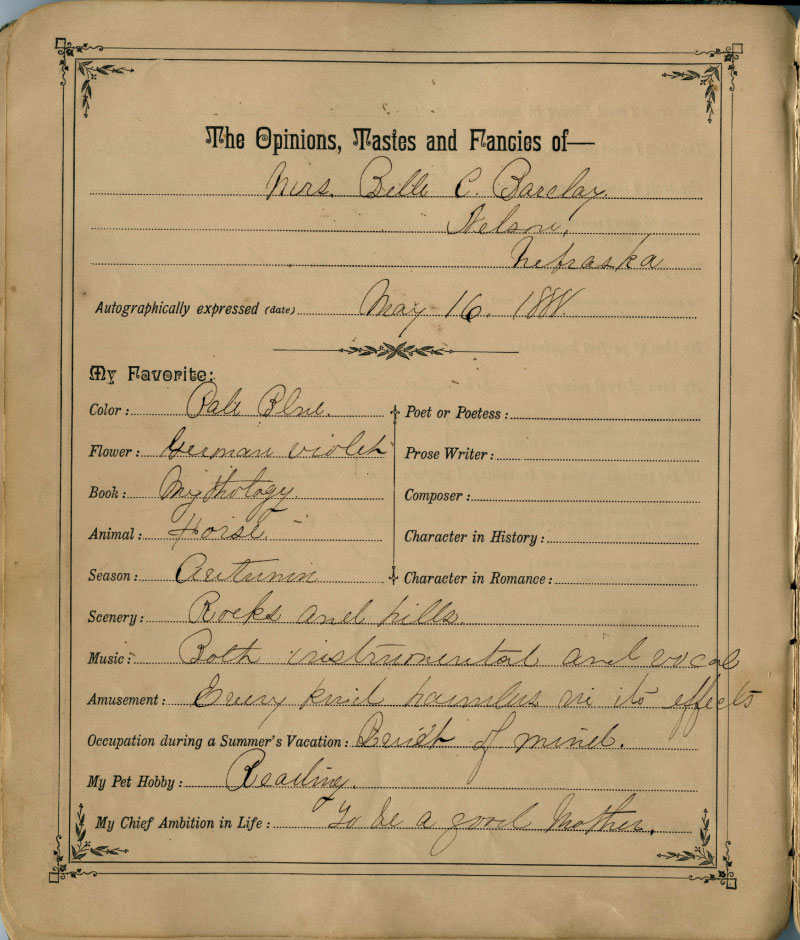 The Opinions, Tastes and Fancies of—
Mrs. Belle C. Barclay.
Nelson,
Nebraska
Autographically expressed (date) May 16, 1888.
My Favorite:
Color: Pale Blue.
Flower: German violet
Book: Mythology.
Animal: Horse.
Season: Autumn
Poet or Poetess:
Prose Writer:
Composer:
Character in History:
Character in Romance:
Scenery: Rocks and hills.
Music: Both instrumental and vocal
Amusement: Every kind harmless in its effects
Occupation during a Summer's Vacation: Quiet of mind.
My Pet Hobby: Reading.
My Chief Ambition in Life: To be a good Mother.